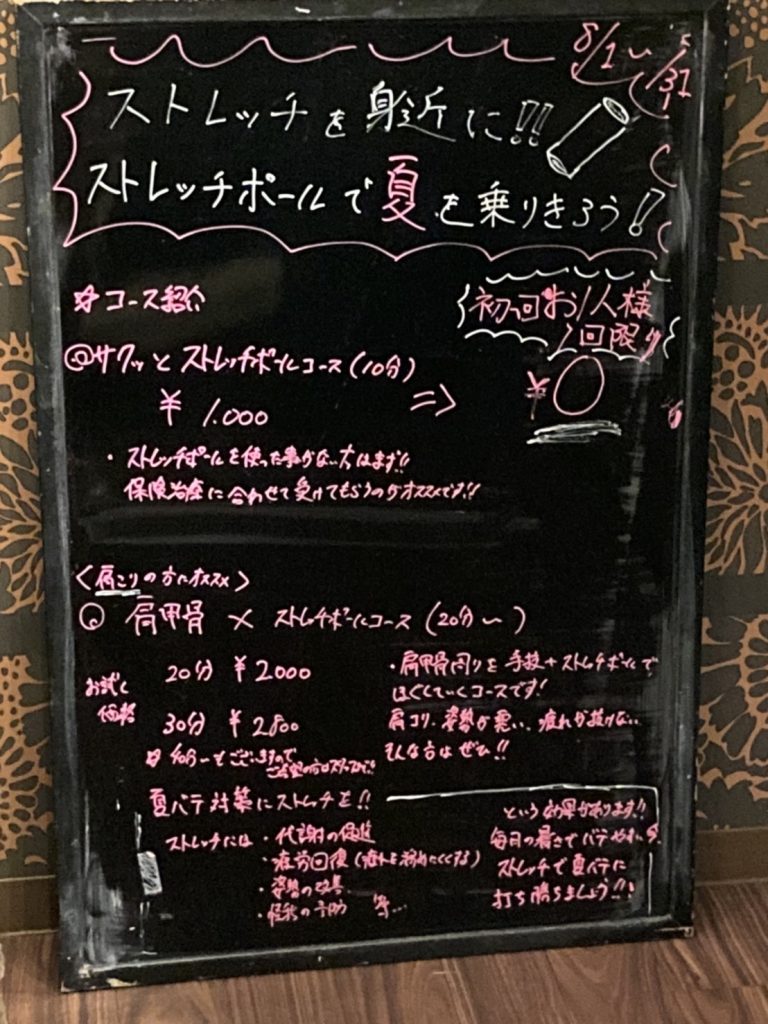 8/1〜8/31
ストレッチを身近に!!
ストレッチポールで夏を乗りきろう!!
☆コース紹介
初回お1人様
1回限り
◎サクッとストレッチポールコース(10分)
¥1.000 ⇒ ¥0
・ストレッチポールを使った事がない方はまず!!
保険治療に合わせて受けてもらうのがオススメです!!
〈肩こりの方にオススメ〉
◎肩甲骨×ストレッチポールコース(20分〜)
お試し
価格
20分 ¥2000
30分 ¥2800
☆40分〜もございますので
ご希望の方はスタッフまで!!
・肩甲骨周りを手技+ストレッチポールで
ほぐしていくコースです!
肩コリ、姿勢が悪い、疲れが抜けない
そんな方はぜひ!!
夏バテ対策にストレッチを!!
ストレッチには
・代謝の促進
・疲労回復(疲れを溜めにくくする)
・姿勢の改善
・怪我の予防 等...
という効果があります!!
毎日の暑さでバテやすい夏
ストレッチで夏バテに
打ち勝ちましょう!!